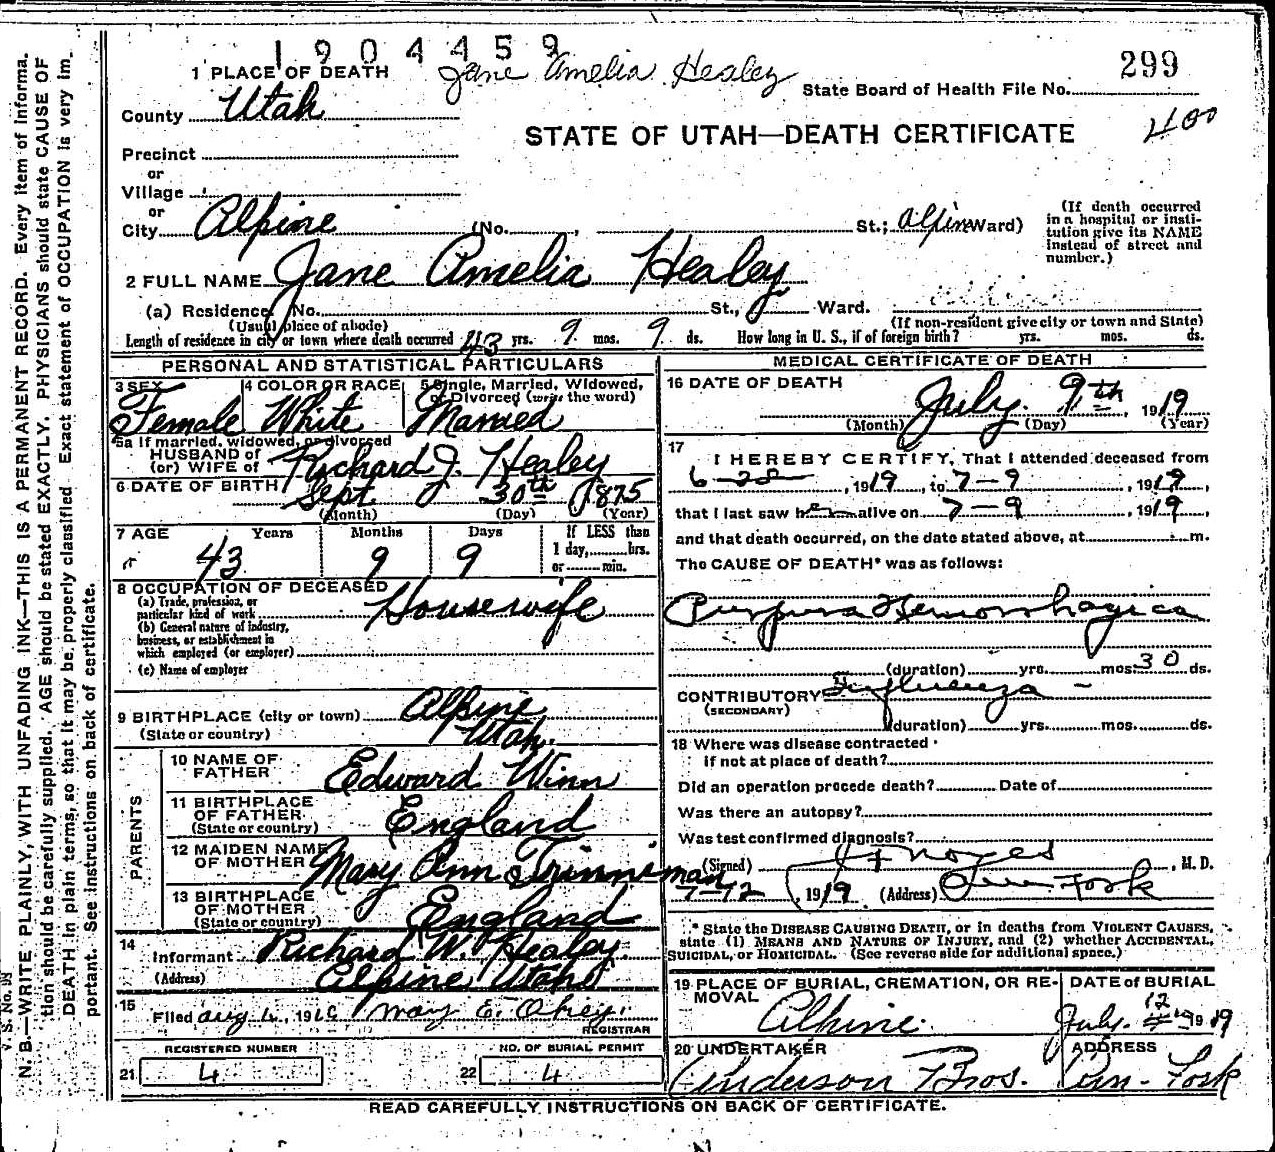 1904459
Jane Amelia Healey
299
State Board of Health File No.
1 PLACE OF DEATH
County Utah
STATE OF UTAH—DEATH CERTIFICATE
400
Precinct
or
Village
or
City Alpine (No. , St.; Alpine Ward)
(If death occurred in a hospital or institution give its NAME instead of street and number.)
2 FULL NAME Jane Amelia Healey
(a) Residence. No. St., Ward.
(Usual place of abode) (If non-resident give city or town and State)
Length of residence in city or town where death occurred 43 yrs. 9 mos. 9 ds. How long in U. S., if of foreign birth? yrs. mos. ds.
PERSONAL AND STATISTICAL PARTICULARS
3 SEX Female
4 COLOR OR RACE White
5 Single, Married, Widowed, or Divorced (write the word) Married
5a If married, widowed, or divorced
HUSBAND of
(or) WIFE of Richard J. Healey
6 DATE OF BIRTH Sept. 30th 1875
(Month) (Day) (Year)
7 AGE Years Months Days If LESS than
43 9 9 1 day, hrs.
or min.
8 OCCUPATION OF DECEASED
(a) Trade, profession, or
particular kind of work Housewife
(b) General nature of industry,
business, or establishment in
which employed (or employer)
(c) Name of employer
9 BIRTHPLACE (city or town) Alpine
(State or country) Utah.
PARENTS
10 NAME OF
FATHER Edward Winn
11 BIRTHPLACE
OF FATHER England
(State or country)
12 MAIDEN NAME
OF MOTHER Mary Ann Trinniman
13 BIRTHPLACE
OF MOTHER England
(State or country)
14
Informant Richard W. Healey.
(Address) Alpine Utah
15
Filed Aug , 19 May E.
REGISTRAR
REGISTERED NUMBER
21 4
NO. OF BURIAL PERMIT
22 4
MEDICAL CERTIFICATE OF DEATH
16 DATE OF DEATH
July 9th, 1919
(Month) (Day) (Year)
17
I HEREBY CERTIFY, That I attended deceased from
6-28, 1919, to 7-9, 1919,
that I last saw her alive on 7-9, 1919,
and that death occurred, on the date stated above, at m.
The CAUSE OF DEATH* was as follows:
Purpura Hemorrhagica
(duration) yrs. mos. 30 ds.
CONTRIBUTORY Influenza -
(SECONDARY)
(duration) yrs. mos. ds.
18 Where was disease contracted
if not at place of death?
Did an operation precede death? Date of
Was there an autopsy?
Was test confirmed diagnosis?
(Signed) Noyes, M. D.
7-12, 1919 (Address) Am Fork
* State the DISEASE CAUSING DEATH, or in deaths from VIOLENT CAUSES,
state (1) MEANS AND NATURE OF INJURY, and (2) whether ACCIDENTAL,
SUICIDAL, or HOMICIDAL. (See reverse side for additional space.)
19 PLACE OF BURIAL, CREMATION, OR REMOVAL
Alpine.
DATE OF BURIAL
July. 12 1919
20 UNDERTAKER
Anderson Bros.
ADDRESS
Am. Fork
READ CAREFULLY INSTRUCTIONS ON BACK OF CERTIFICATE.
V. S. No. 99
N. B.—WRITE PLAINLY, WITH UNFADING INK—THIS IS A PERMANENT RECORD. Every item of informa-
tion should be carefully supplied. AGE should be stated EXACTLY. PHYSICIANS should state CAUSE OF
DEATH in plain terms, so that it may be properly classified. Exact statement of OCCUPATION is very im-
portant. See instructions on back of certificate.